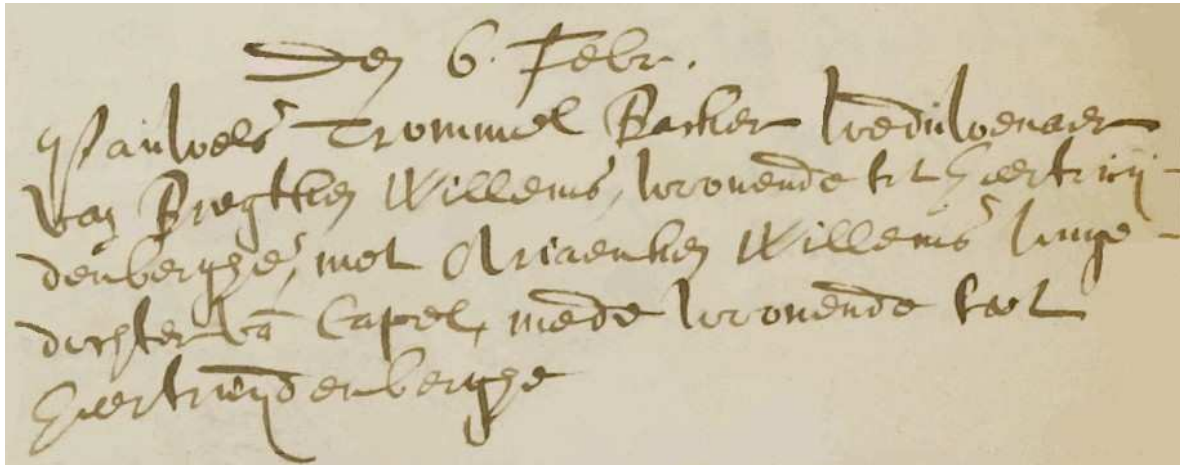 Den 6. Febr.
Pauwels Trommel Backer Weduwenaer
van Bregtken Willems, woonende tot Geertruij-
denberghe, met Ariaenken Willems Jonge-
dochter vā Capel, mede woonende tot
Geertruydenberghe